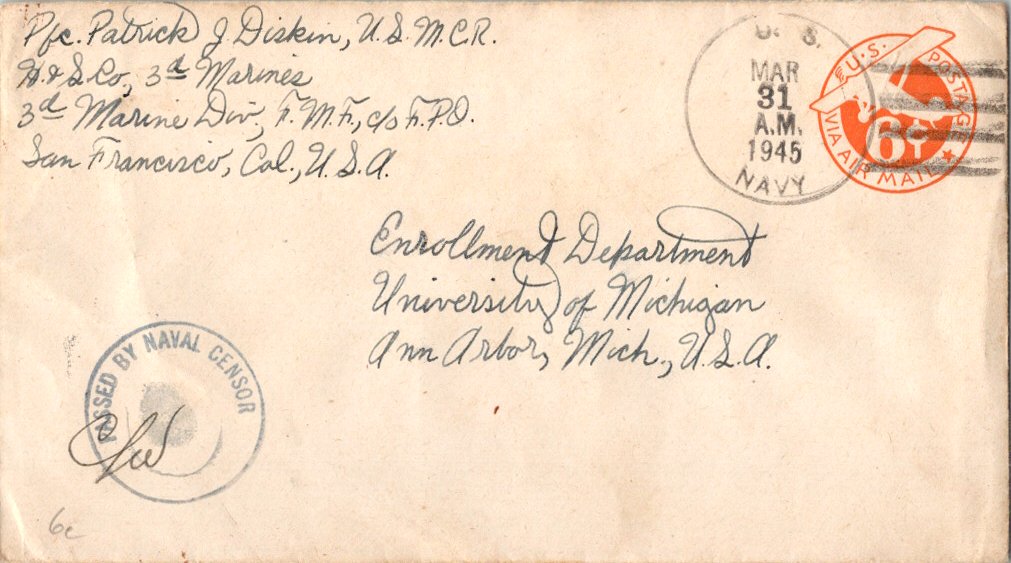 Pfc. Patrick J Diskin, U.S.M.C.R.
H.&S.Co, 3d Marines
3d Marine Div, F.M.F., c/o F.P.O.
San Francisco, Cal., U.S.A.
U. S.
MAR
31
A.M.
1945
NAVY
U.S. POSTAGE
6¢
VIA AIR MAIL
Enrollment Department
University of Michigan
Ann Arbor, Mich., U.S.A.
PASSED BY NAVAL CENSOR
6c